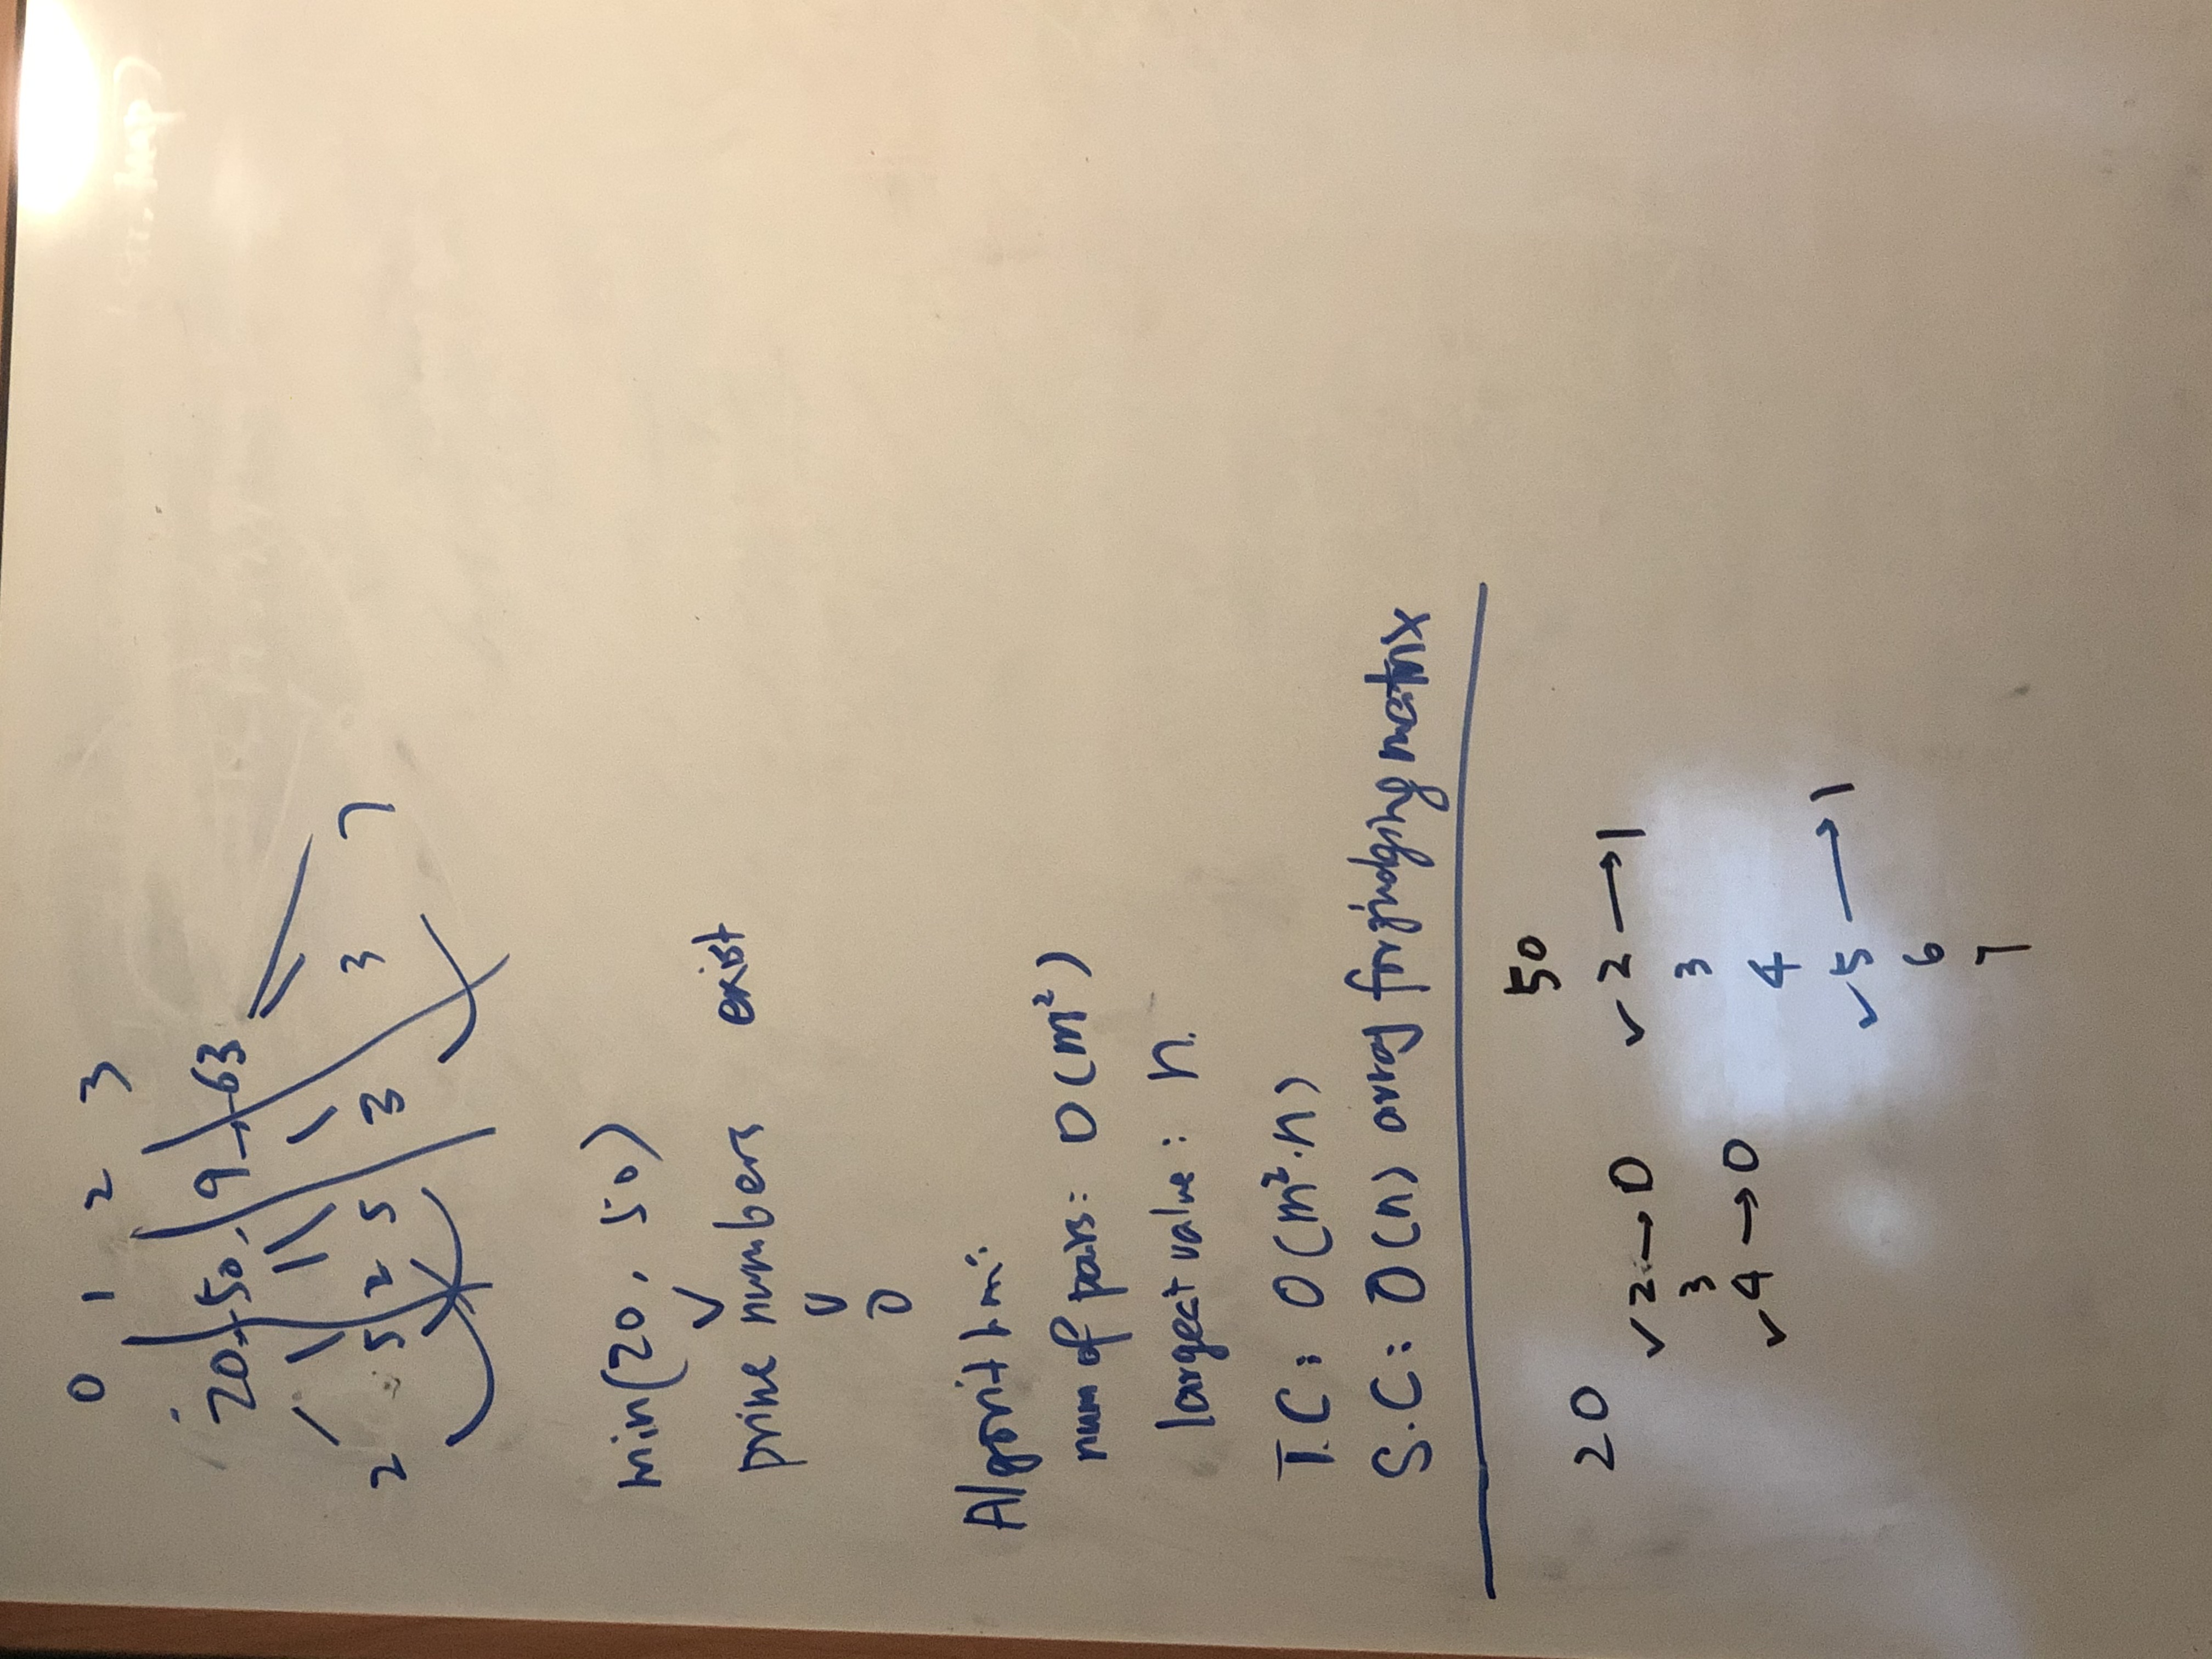 0 1 2 3
20 50 9 63
2 5 2 5 3 3 7
min(20, 50)
prime numbers exist
0
Algorithm:
num of pairs: O(m²)
largest value: n.
T.C: O(m²·n)
S.C: O(n) array for judging matrix
50
20
✓2→0 ✓2→1
3 3
✓4→0 4
✓5→1
6
7